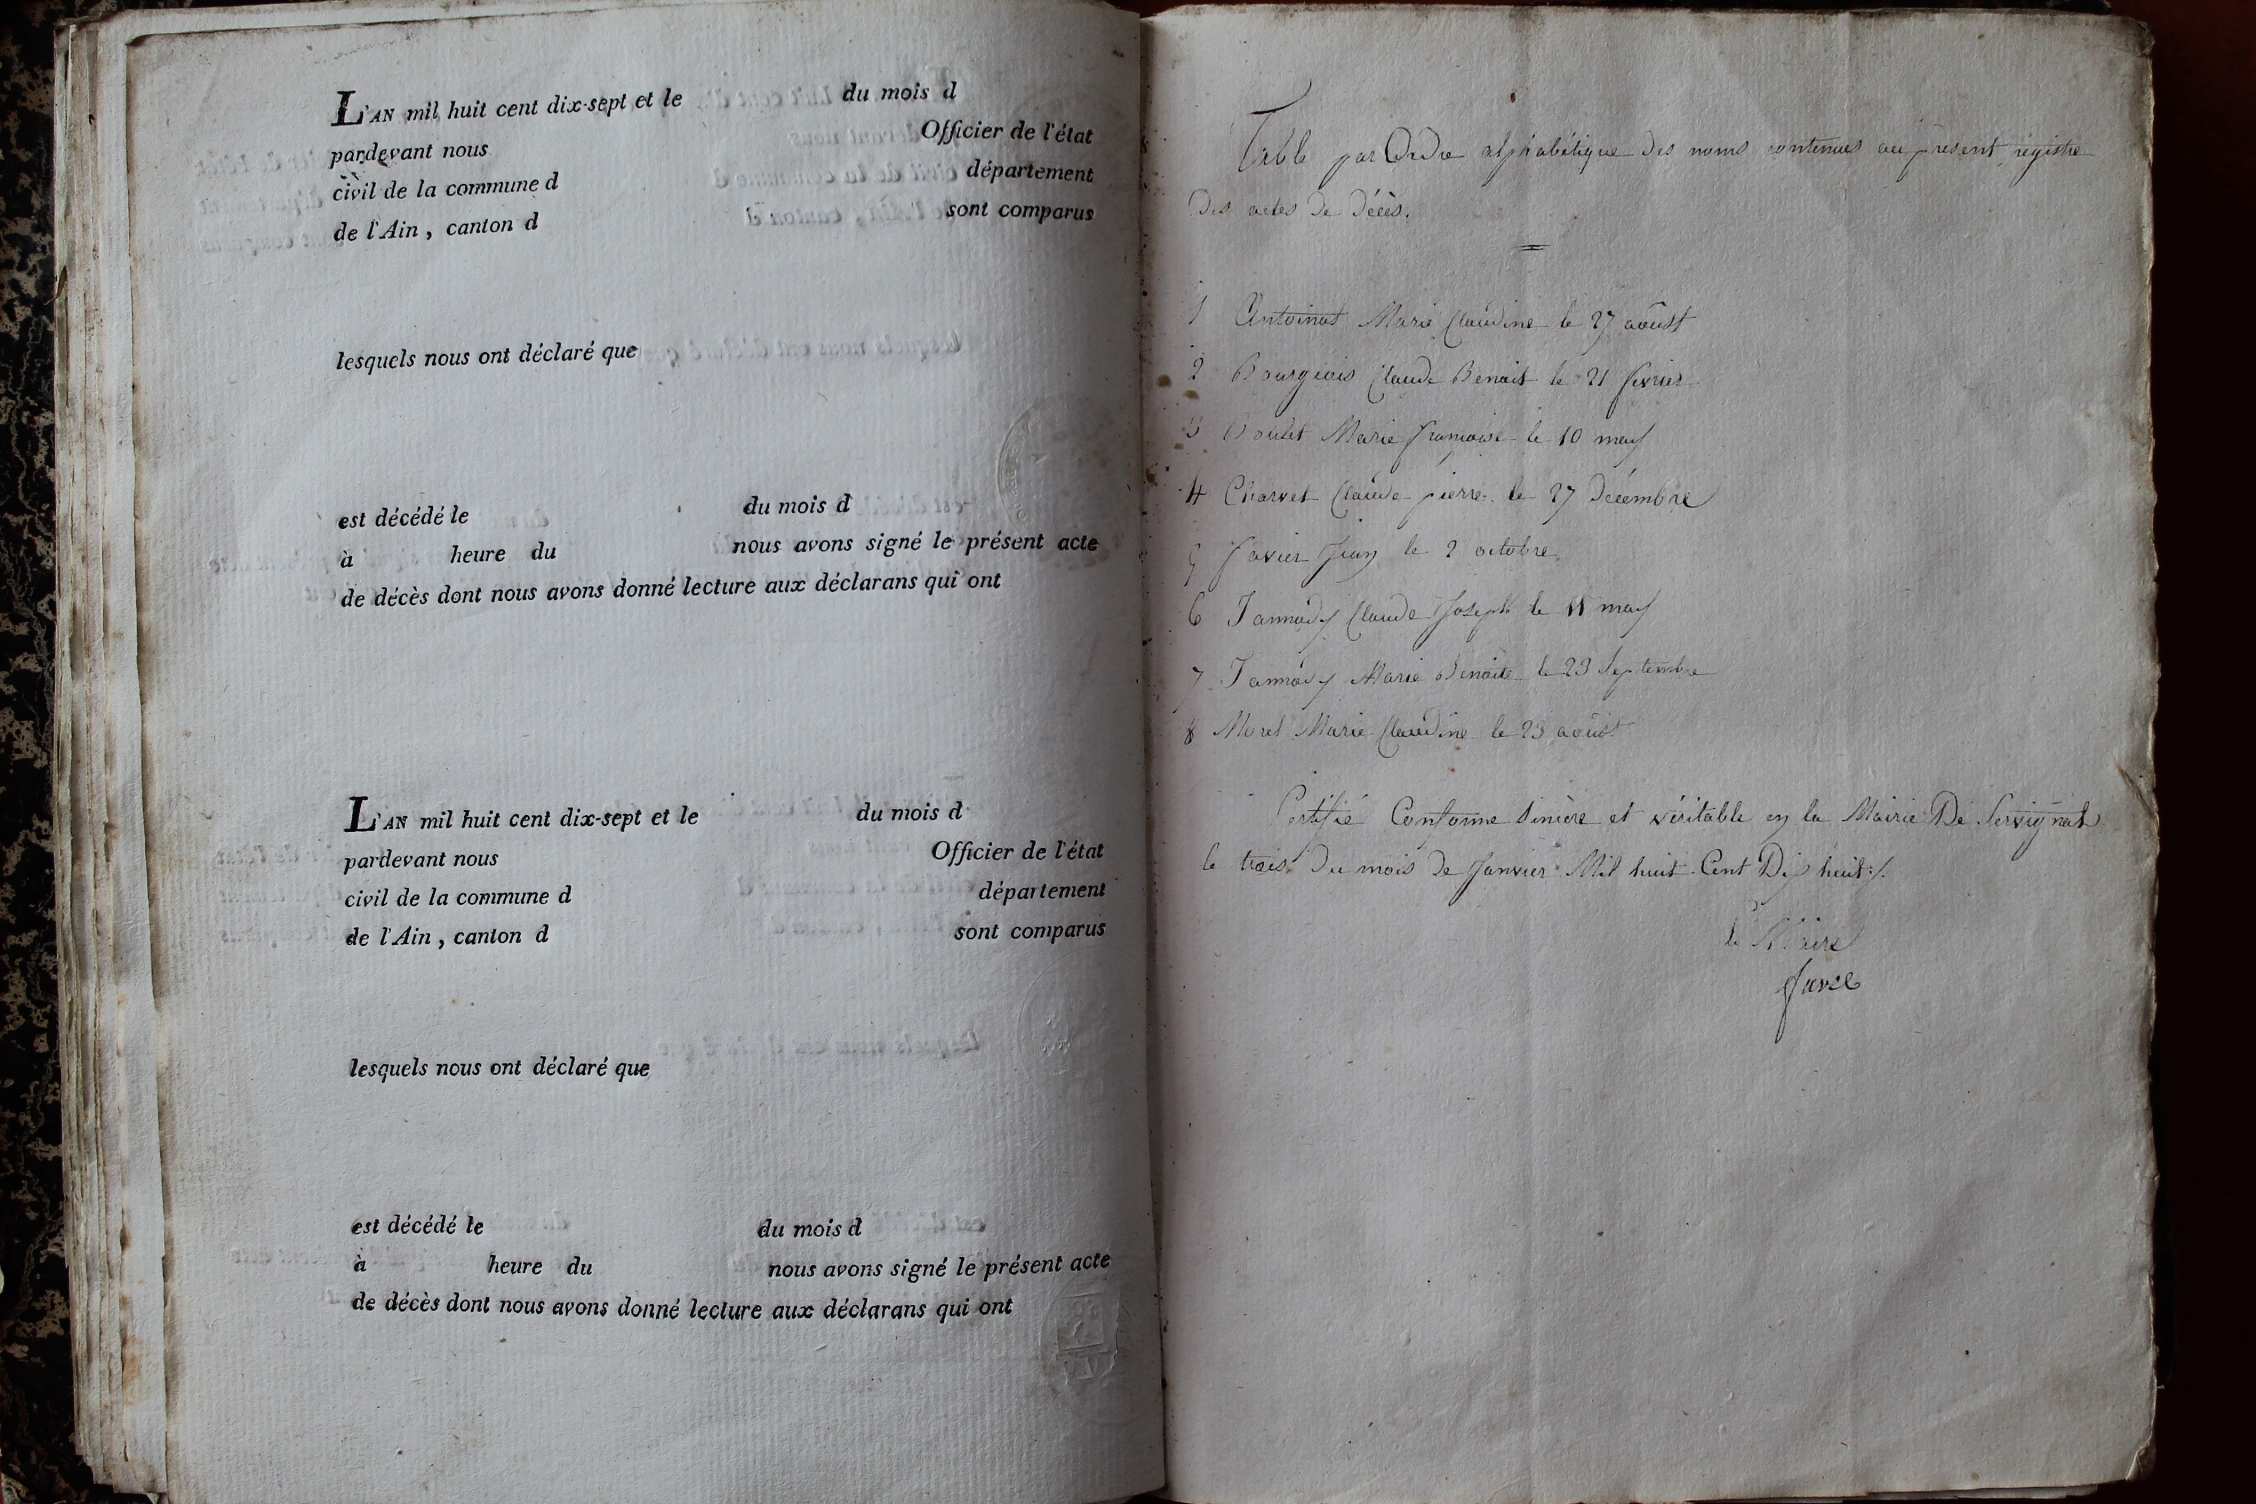 L'AN mil huit cent dix-sept et le du mois d
pardevant nous Officier de l'état
civil de la commune d département
de l'Ain, canton d sont comparus
lesquels nous ont déclaré que
est décédé le du mois d
à heure du nous avons signé le présent acte
de décès dont nous avons donné lecture aux déclarans qui ont
L'AN mil huit cent dix-sept et le du mois d
pardevant nous Officier de l'état
civil de la commune d département
de l'Ain, canton d sont comparus
lesquels nous ont déclaré que
est décédé le du mois d
à heure du nous avons signé le présent acte
de décès dont nous avons donné lecture aux déclarans qui ont
Table par Ordre alphabétique des noms contenues au présent registre
des actes de décès.
1 Antoinat Marie Claudine le 27 aoust
2 Bourgeois Claude Benoit le 21 fevrier
3 Boulet Marie françoise le 10 may
4 Charvet Claude pierre le 27 Décembre
5 Javier Jean le 2 octobre
6 Jannody Claude Joseph le 11 may
7 Jannody Marie Benoite le 23 Septembre
8 Morel Marie Claudine le 23 aoust
Certifié Conforme Sinsère et véritable en la Mairie De Servignat
le trois du mois de Janvier Mil huit Cent Dix huit
le Maire